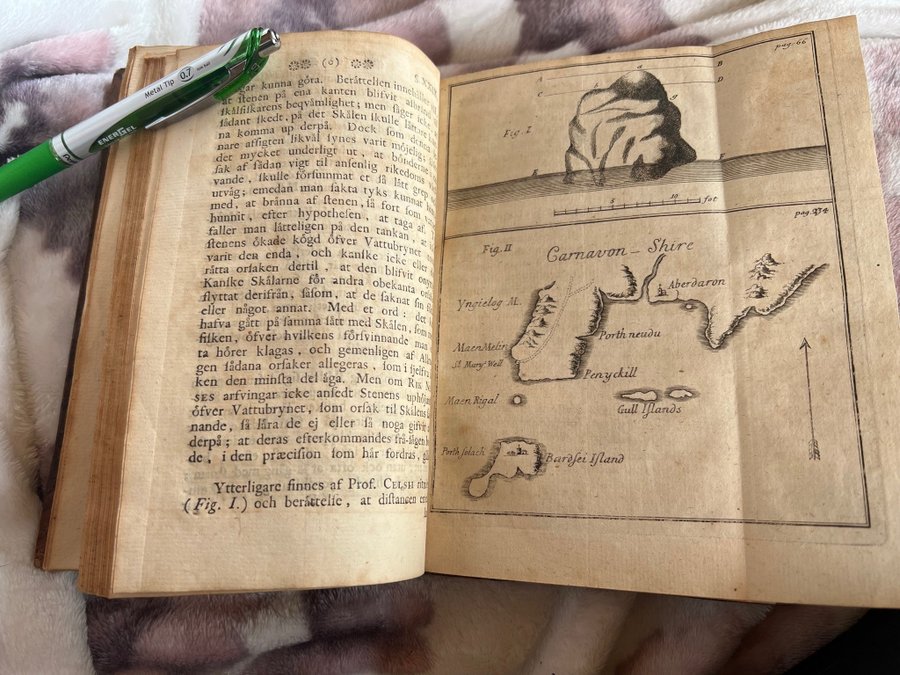 Metal Tip 0.7
ENERGEL
(6)
gar kunna göra. Beråttelsen innehåller
at stenen på ena kanten blifvit
skålfiskarens beqvåmlighet; men såger icke
sådant skedt, på det Skålen skulle låttare
na komma up derpå. Dock som denna
nare afsigten likvål synes varit möjelig;
det mycket underligt ut, at bönderne
sak af sådan vigt til ansenlig rikedoms
vande, skulle försummat et så lått grep
utvåg; emedan man sakta tyks kunnat
med, at brånna af stenen, så fort som
hunnit, efter hypothesen, at taga af.
faller man låtteligen på den tankan, at
stenens ökade högd öfver Vattubrynet
varit den enda, och kanske icke eller
råtta orsaken dertil, at den blifvit
Kanske Skålarne för andra obekanta
flyttat derifrån, såsom, at de saknat sin
eller något annat. Med et ord: det
hafva gått på samma sått med Skålen, som
fisken, öfver hvilkens försvinnande man
ta hörer klagas, och gemenligen af
gen sådana orsaker allegeras, som i sjelfva
ken den minsta del åga. Men om
ses arfvingar icke ansedt Stenens
öfver Vattubrynet, som orsak til Skålens
nande, så låra de ej eller så noga gifvit
derpå; at deras efterkommandes frå-sågen
de, i den præcision som hår fordras,
Ytterligare finnes af Prof. CELSII
(Fig. I.) och beråttelse, at distancen
pag. 66
A
a
B
D
C
g
Fig. I
E
F
5
10
fot
pag. 234
Fig. II
Carnavon_Shire
Yngielog M.
Aberdaron
Porth neudu
Maen Melin
St Mary Well
Penyckill
Maen Rigal
Gull Islands
Porth solach
Bardsei Island